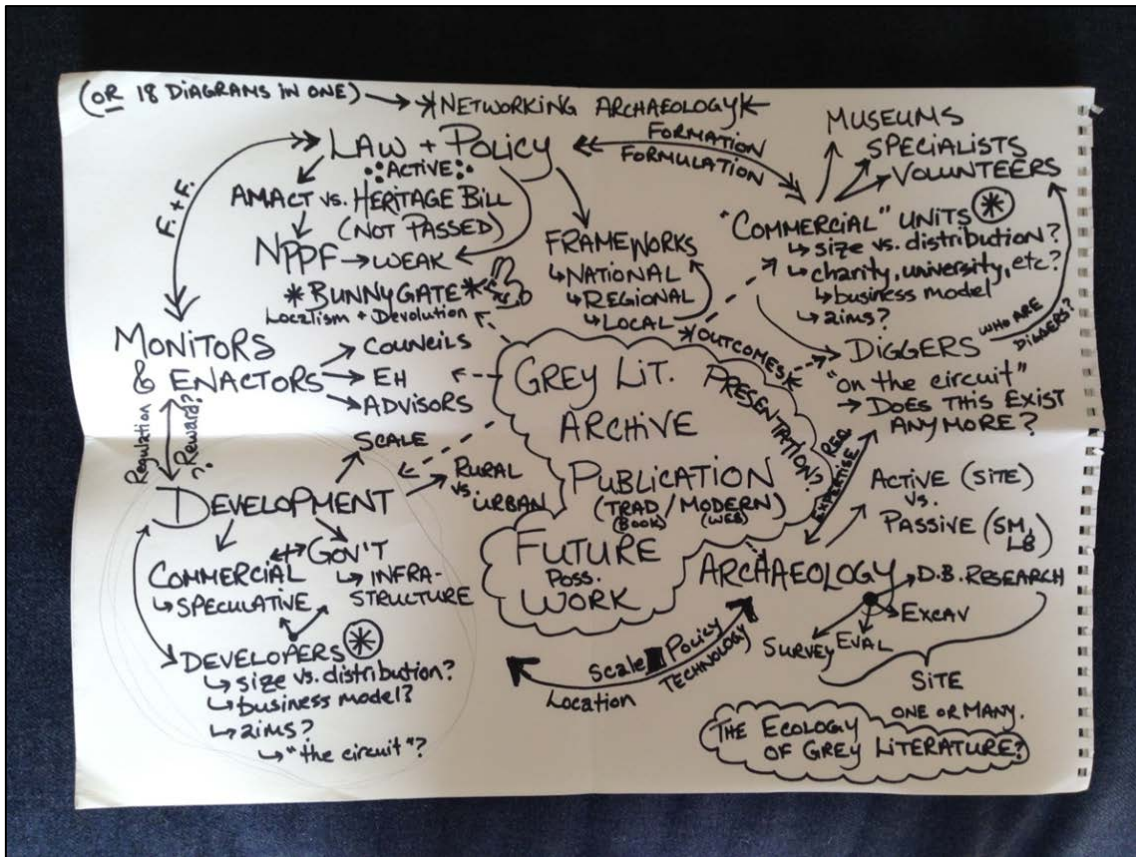 (OR 18 DIAGRAMS IN ONE) → *NETWORKING ARCHAEOLOGY*
LAW + POLICY
ACTIVE
AMACT vs. HERITAGE BILL
(NOT PASSED)
NPPF → WEAK
*BUNNYGATE*
Localism + Devolution
F. + F.
FORMATION
FORMULATION
FRAMEWORKS
↳ NATIONAL
↳ REGIONAL
↳ LOCAL
MUSEUMS
SPECIALISTS
VOLUNTEERS
"COMMERCIAL" UNITS *
↳ size vs. distribution?
↳ charity, university, etc?
↳ business model
↳ aims?
DIGGERS
WHO ARE
DIGGERS?
"on the circuit"
→ DOES THIS EXIST
ANYMORE?
MONITORS
& ENACTORS
→ COUNCILS
→ EH
→ ADVISORS
Regulation
Reward?
GREY LIT.
ARCHIVE
PUBLICATION
(TRAD/MODERN)
(BOOK) (WEB)
*OUTCOMES*
PRESENTATION?
FUTURE
POSS.
WORK
REQ.
EXPERTISE
SCALE
RURAL
vs.
URBAN
DEVELOPMENT
COMMERCIAL
↳ SPECULATIVE
↔ GOV'T
↳ INFRA-
STRUCTURE
DEVELOPERS *
↳ size vs. distribution?
↳ business model?
↳ aims?
↳ "the circuit"?
ACTIVE (SITE)
vs.
PASSIVE (SM, LB)
ARCHAEOLOGY
D.B. RESEARCH
EXCAV
EVAL
SURVEY
SITE
ONE OR MANY.
Scale
Policy
Location
TECHNOLOGY
THE ECOLOGY
OF GREY LITERATURE?